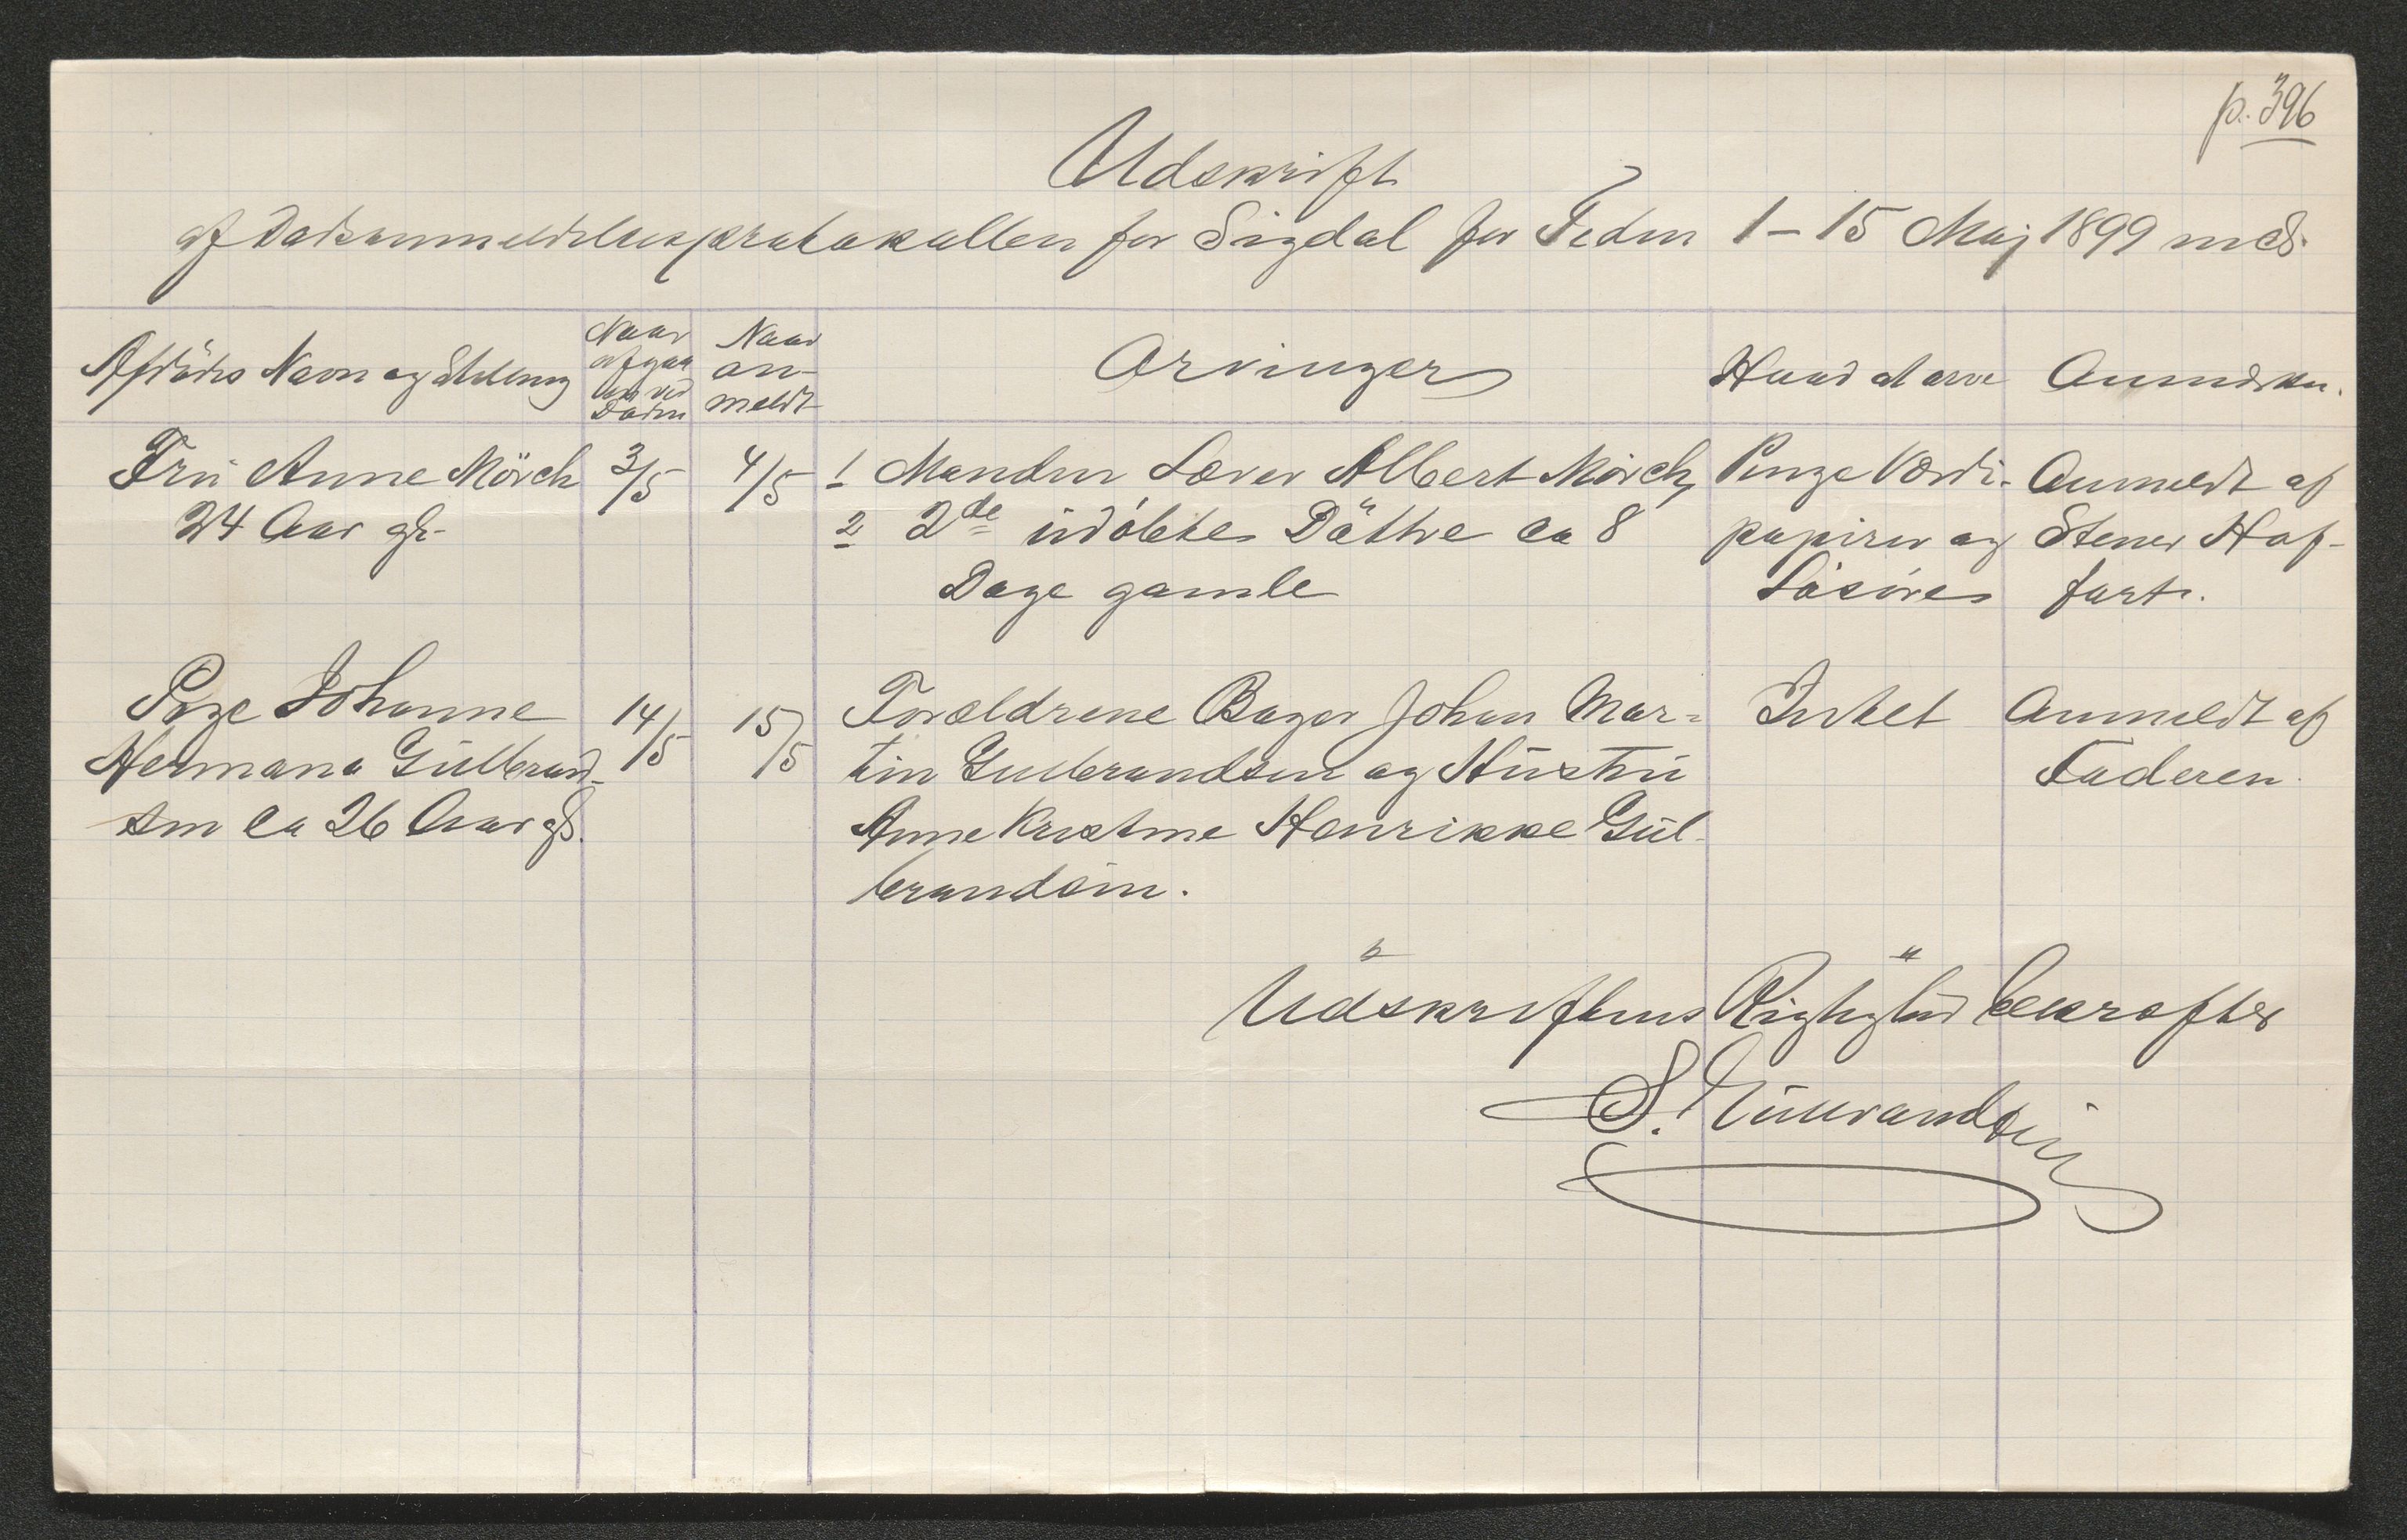 p. 396
Udskrift
af Dødsanmeldelsesprotokollen for Sigdal for Tiden 1-15 Maj 1899 med.
Afdödes Navn og Stilling
Naar
afgaaet
ved
Døden
Naar
an-
meldt
Arvinger
Hvad at arve
Anmærkn.
Fru Anne Mörch
24 Aar gl.
3/5
4/5
1 Manden Lærer Albert Mörch,
2 2de udøbte Døttre ca 8
Dage gamle
Penge Værdi-
papirer og
Løsøre
Anmeldt af
Stener Hof-
fart.
Pige Johanne
Hermana Gulbrand-
sen ca 26 Aar gl.
14/5
15/5
Forældrene Bager Johan Mar-
tin Gulbrandsen og Hustru
Anne Kristine Henrikke Gul-
brandsen.
Intet
Anmeldt af
Faderen.
Udskriftens Rigtighed bekræftes
S. Gulbrandsen